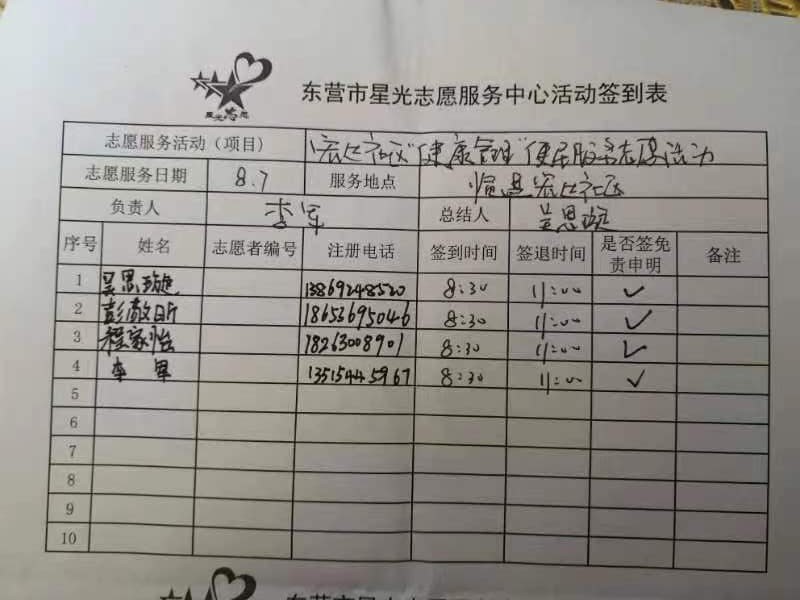 星光志愿
东营市星光志愿服务中心活动签到表
志愿服务活动（项目） 宏达社区"健康管理"便民服务志愿活动
志愿服务日期 8.7 服务地点 宏达社区
负责人 李军 总结人 吴思璇
序号 姓名 志愿者编号 注册电话 签到时间 签退时间 是否签免责申明 备注
1 吴思璇 13869248520 8:30 11:00 ✓
2 彭敬昕 18653695046 8:30 11:00 ✓
3 程家怡 18263008901 8:30 11:00 ✓
4 李军 13515445967 8:30 11:00 ✓
5
6
7
8
9
10